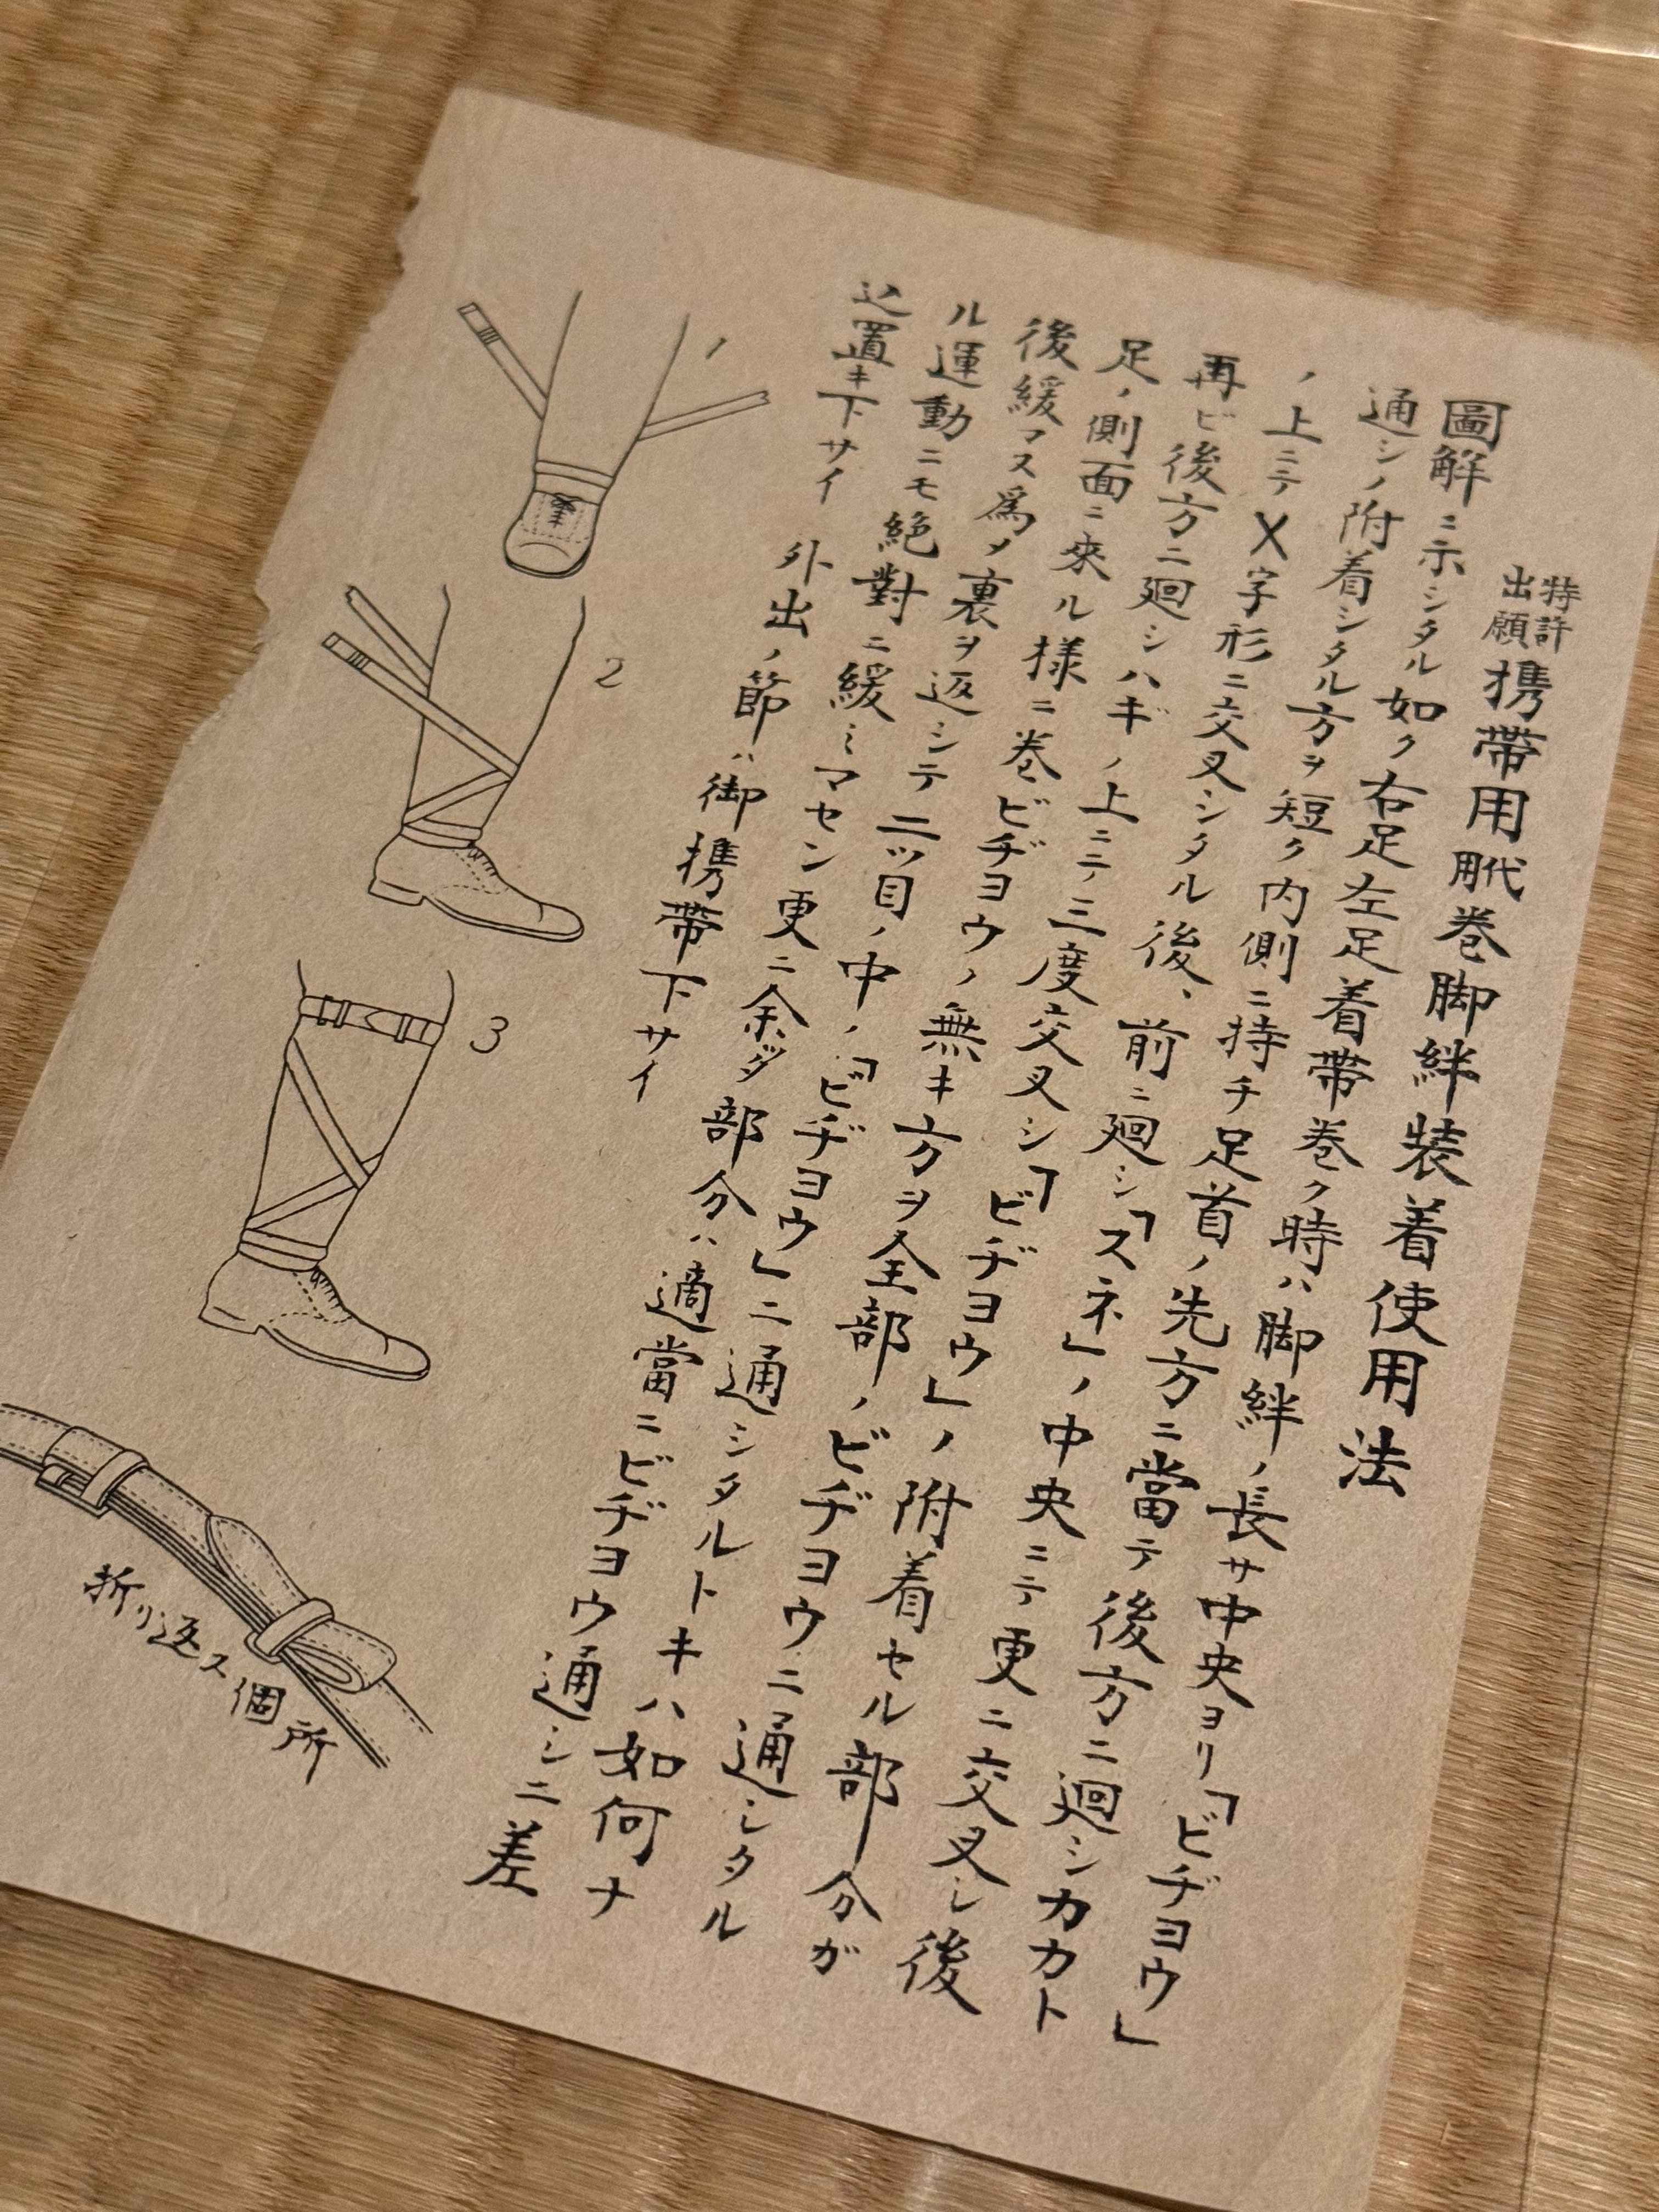 特許
出願
携帶用代用巻脚絆装着使用法
圖解ニ示シタル如ク右足左足着帶巻ク時ハ脚絆ノ長サ中央ヨリ「ビヂヨウ」
通シノ附着シタル方ヲ短ク内側ニ持チ足首ノ先方ニ當テ後方ニ廻シカカト
ノ上ニテX字形ニ交叉シタル後、前ニ廻シ「スネ」ノ中央ニテ更ニ交叉シ後
再ビ後方ニ廻シハギノ上ニテ三度交叉シ「ビヂヨウ」ノ附着セル部分ガ
足ノ側面ニ來ル様ニ巻ビヂヨウノ無キ方ヲ全部ノビヂヨウニ通シタル
後緩マス爲メ裏ヲ返シテ二ッ目ノ中ノ「ビヂヨウ」ニ通シタルトキハ如何ナ
ル運動ニモ絶對ニ緩ミマセン更ニ余ッダ部分ハ適當ニビヂヨウ通シニ差
込置キ下サイ 外出ノ節ハ御携帶下サイ
1
2
3
折リ返ス個所